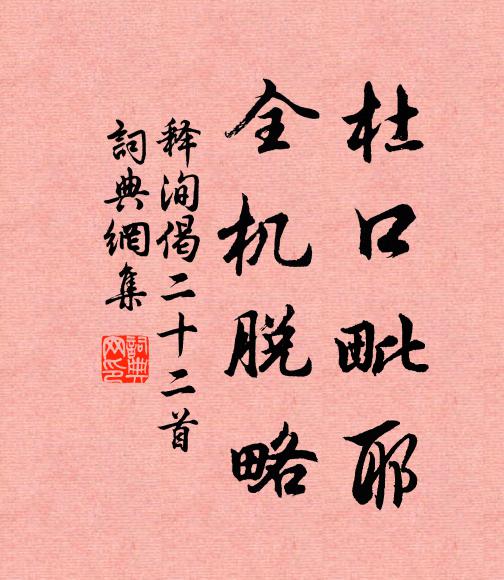 杜口毗耶
全机脱略
释洵偈二十二首
詞典網集
詞典
网印